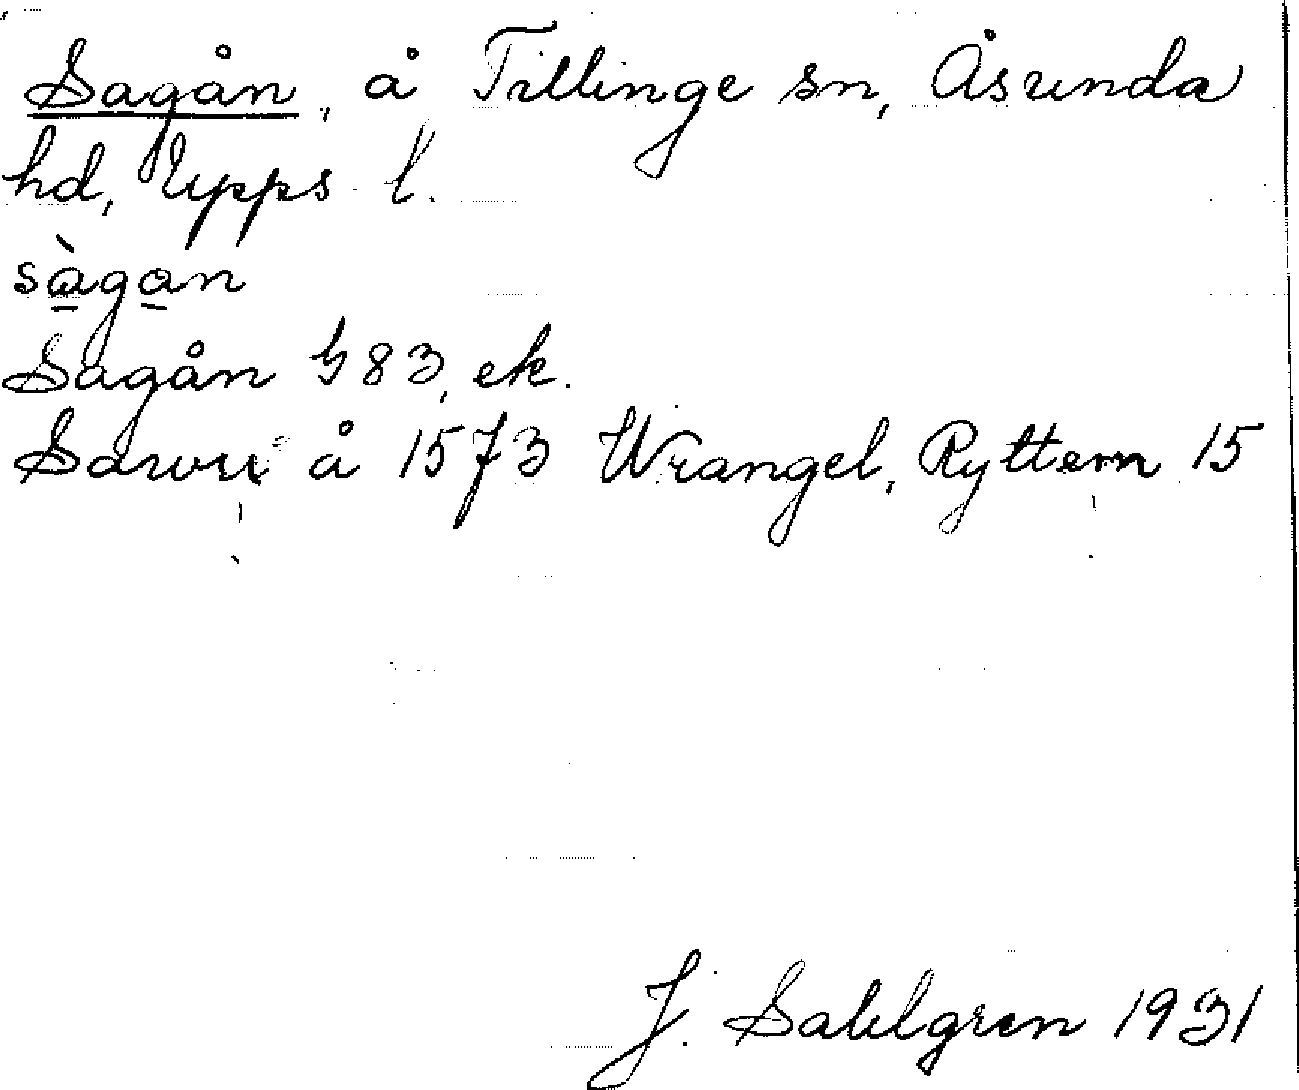 Sagån, å Tillinge sn, Åsunda
hd, Upps. l.
sàgan
Sagån G 83, ek.
å 1573 Wrangel, Ryttern 15
J. Sahlgren 1931